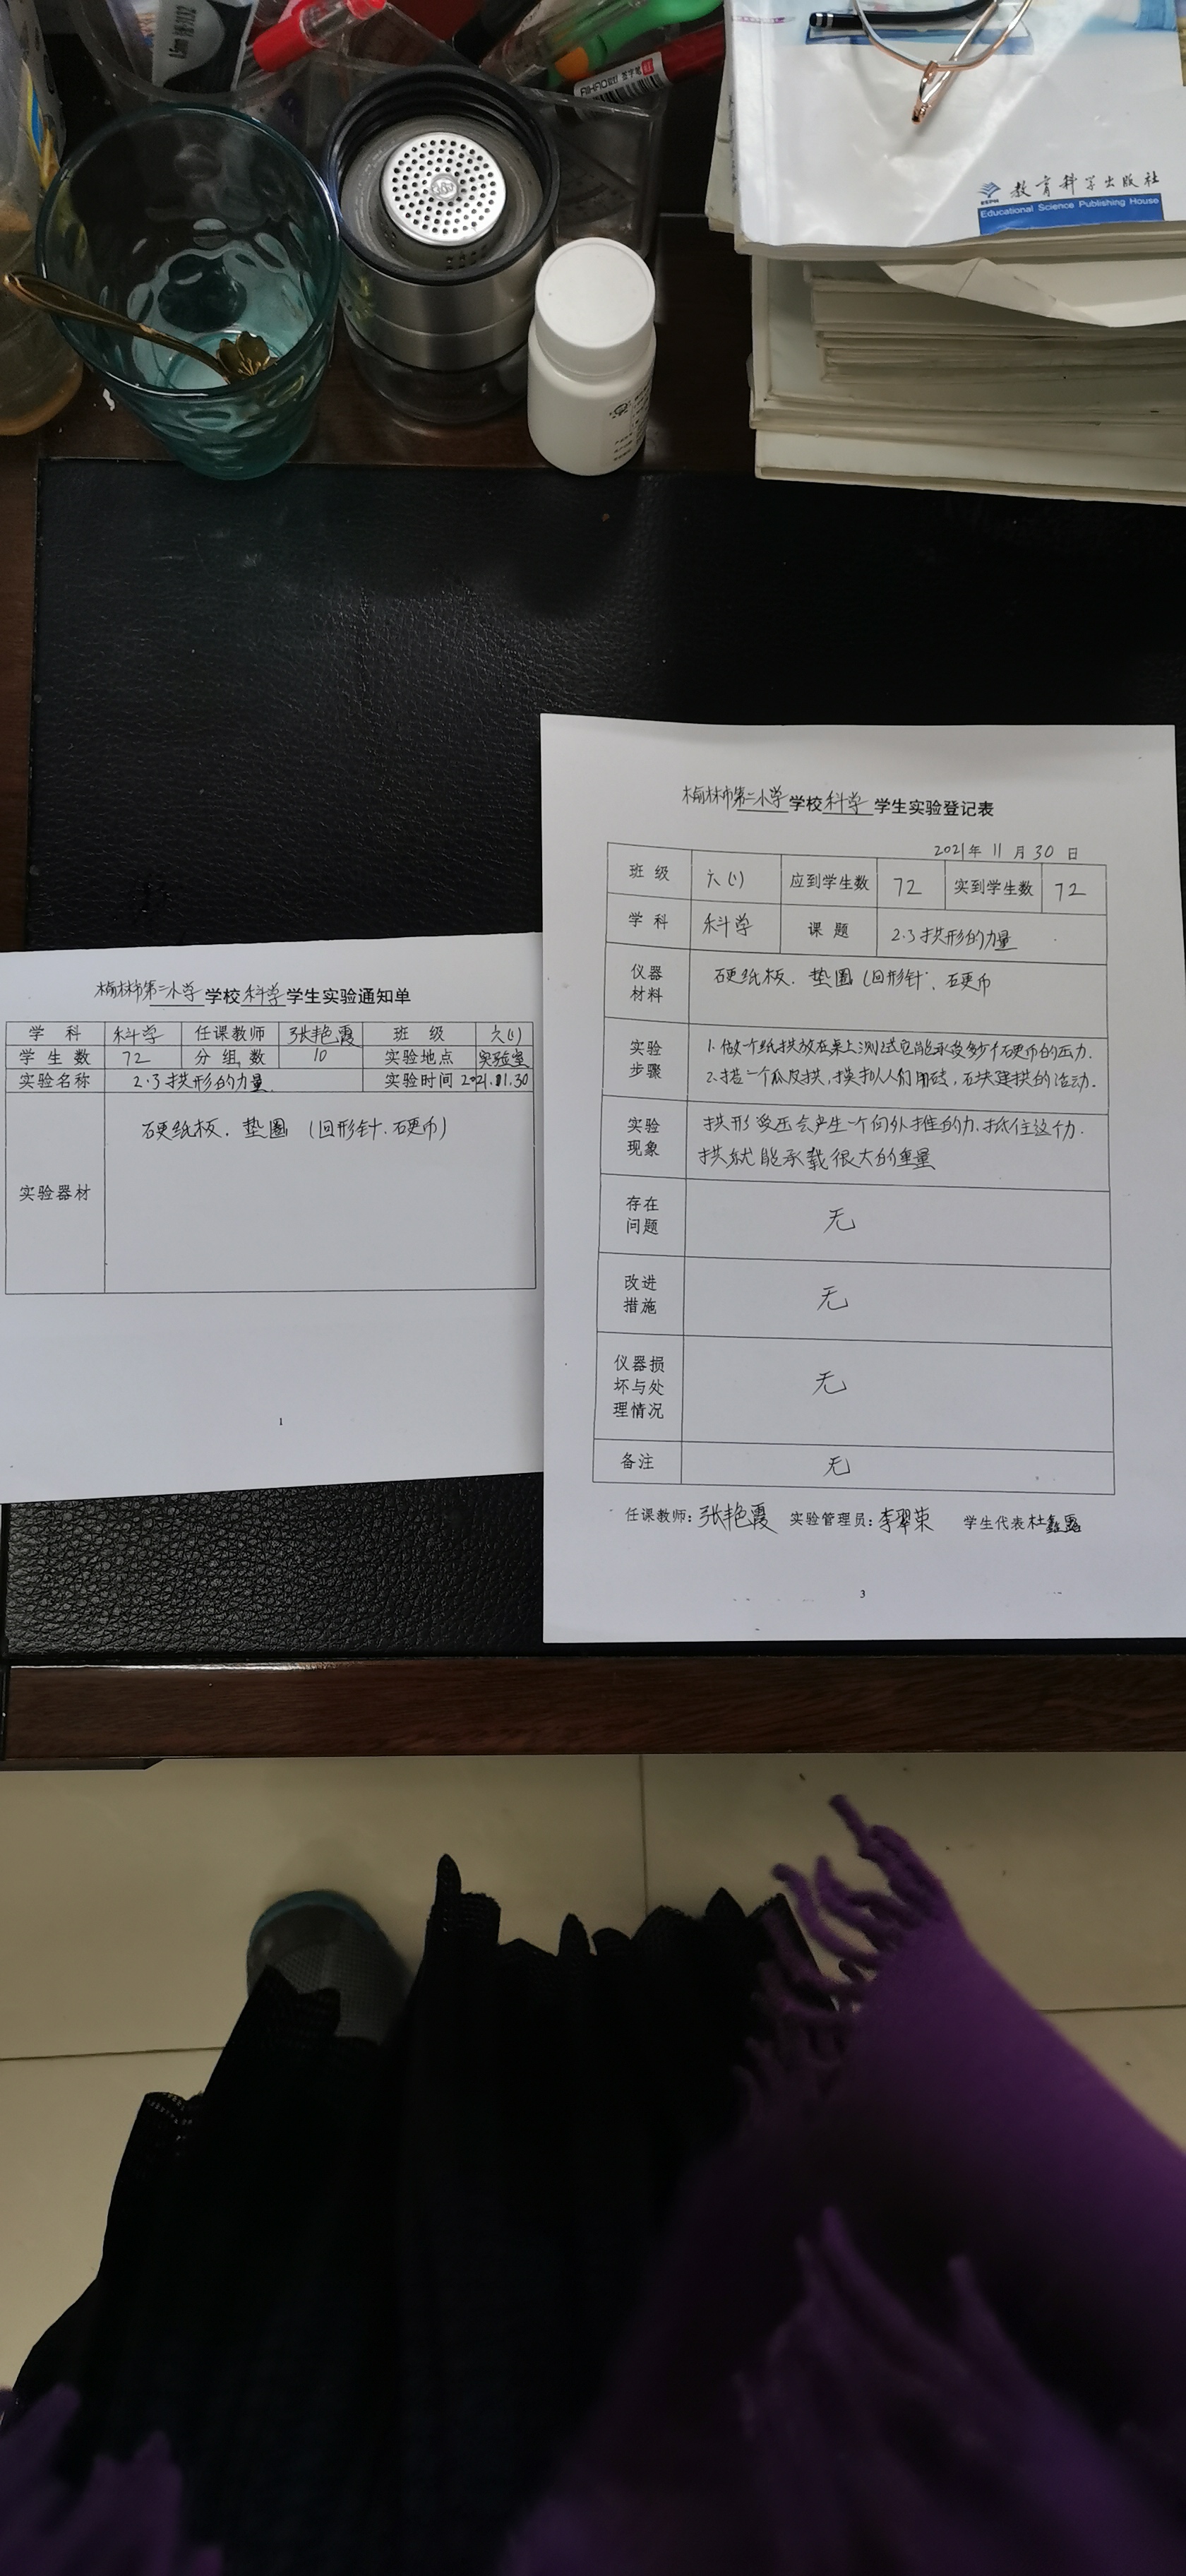 教育科学出版社
Educational Science Publishing House
榆林市第二小学学校科学学生实验通知单
学科 科学 任课教师 张艳霞 班级 六(1)
学生数 72 分组数 10 实验地点 实验室
实验名称 2.3拱形的力量 实验时间 2021.11.30
实验器材 硬纸板、垫圈(回形针、硬币)
1
榆林市第二小学学校科学学生实验登记表
2021年11月30日
班级 六(1) 应到学生数 72 实到学生数 72
学科 科学 课题 2.3拱形的力量
仪器材料 硬纸板、垫圈(回形针、硬币
实验步骤 1.做一个纸拱放在桌上测试它能承受多少个硬币的压力.
2.搭一个瓜皮拱,模拟人们用砖,石块建拱的活动.
实验现象 拱形受压会产生一个向外推的力.抵住这个力.
拱就能承载很大的重量
存在问题 无
改进措施 无
仪器损坏与处理情况 无
备注 无
任课教师:张艳霞 实验管理员:李翠荣 学生代表杜鑫露
3